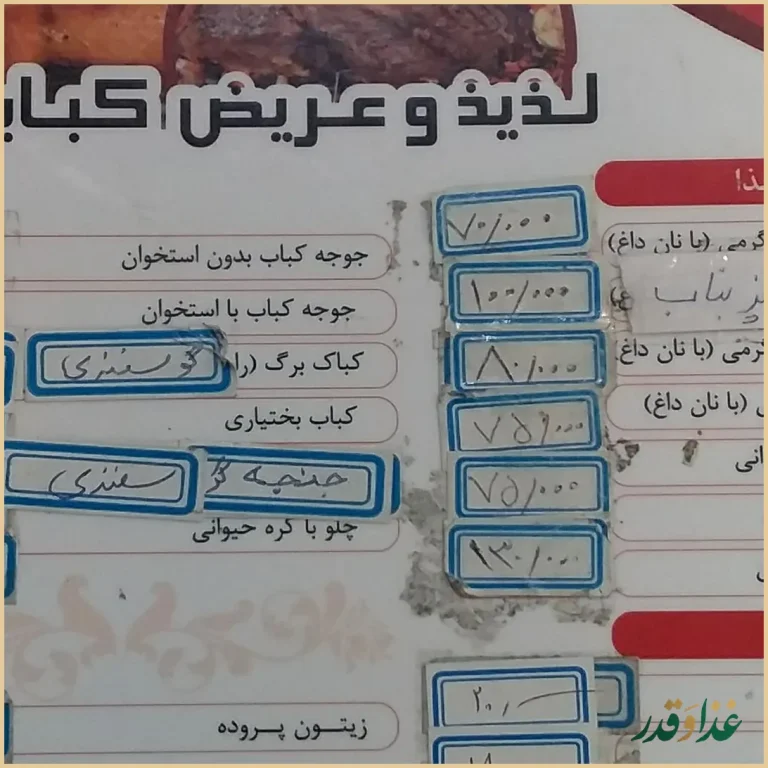 لـذیذ و عـریض کباب
ذا
گرمی (با نان داغ) ۷۰/۰۰۰ جوجه کباب بدون استخوان
بناب ۱۰۰/۰۰۰ جوجه کباب با استخوان
گرمی (با نان داغ) ۸۰/۰۰۰ کباک برگ (را گوسفندی
(با نان داغ) ۷۵/۰۰۰ کباب بختیاری
انی ۷۵/۰۰۰ جنجه گوسفندی
۱۳۰/۰۰۰ چلو با کره حیوانی
۲۰/ زیتـون پـروده
غذا و قدر